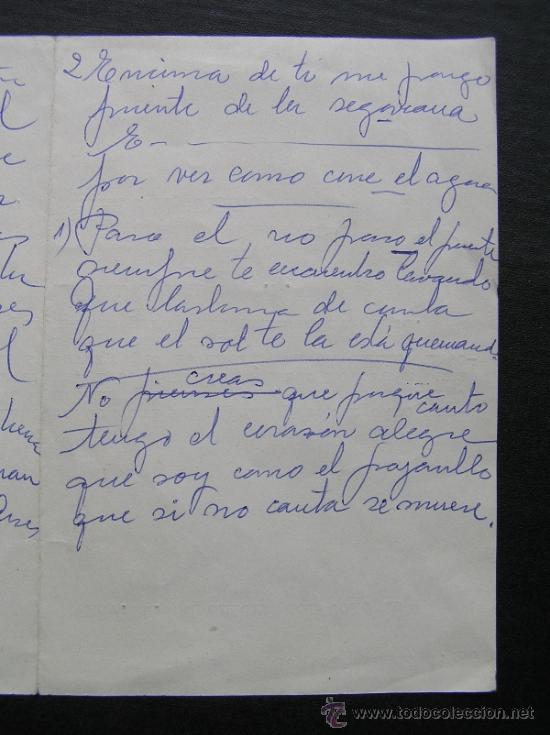 2 Encima de ti me pongo
puente de la segoviana
E-
por ver como corre el agua
1) Paso el rio paso el puente
siempre te encuentro lavando
que lastima de carita
que el sol te la está quemand
creas
No pienses que porque canto
tengo el corazón alegre
que soy como el pajarillo
que si no canta se muere.
TC todocoleccion
www.todocoleccion.net